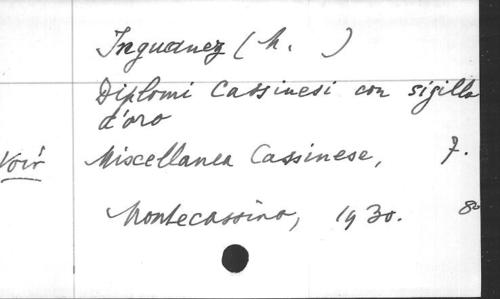 Inguanez (M. )
Diplomi Cassinesi con sigillo
d'oro
Voir Miscellanea Cassinese, 7.
Montecassino, 1930. 8º